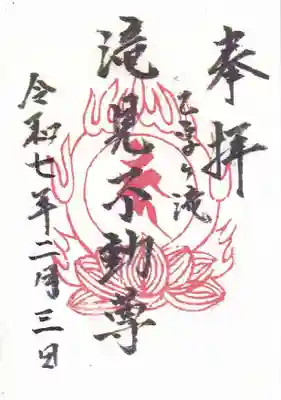 奉拝
乙字ヶ滝
滝見不動尊
令和七年二月三日